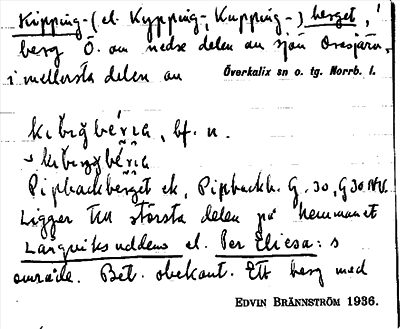 Kipping-(el. Kypping-, Kupping-) berget,
berg Ö. om nedre delen av sjön Orasjärvi
i mellersta delen av Överkalix sn o. tg. Norrb. l.
bf. n.
Pipbackberget ek, Pipbackb. G. 30, G 30 NV.
Ligger till största delen på hemmanet
Långviksuddens el. Per Eliesa:s
område. Bet. obekant. Ett berg med
EDVIN BRÄNNSTRÖM 1936.